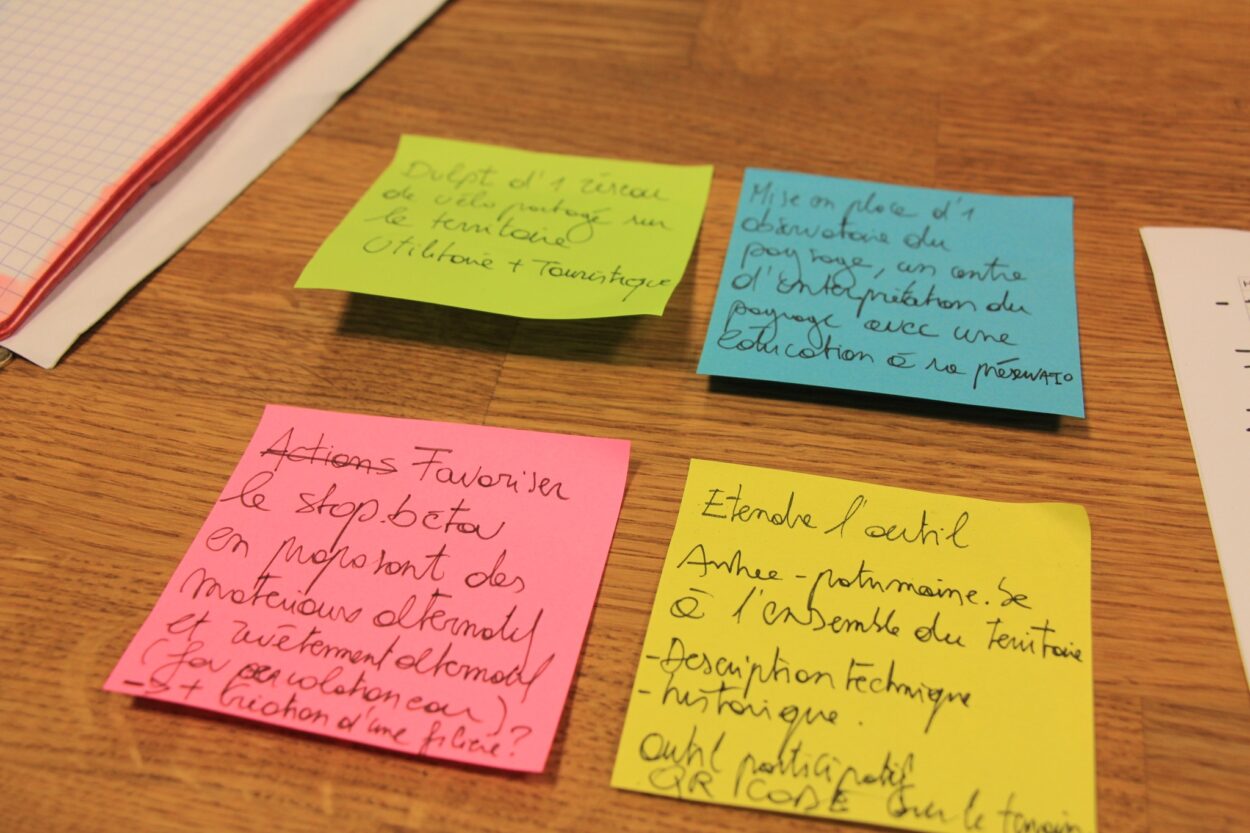 Dvlpt d'1 réseau
de vélo partagé sur
le territoire
Utilitaire + Touristique
Mise en place d'1
observatoire du
paysage, un centre
d'interprétation du
paysage avec une
éducation à sa préservatio
Actions Favoriser
le stop.béton
en proposant des
matériaux alternatif
et revêtement alternatif
percolation eau)
+ création d'une filière?
Etendre l'outil
Anhee-patrimoine.be
à l'ensemble du territoire
-Description technique
-historique.
outil participatif
QR CODE sur le terrain